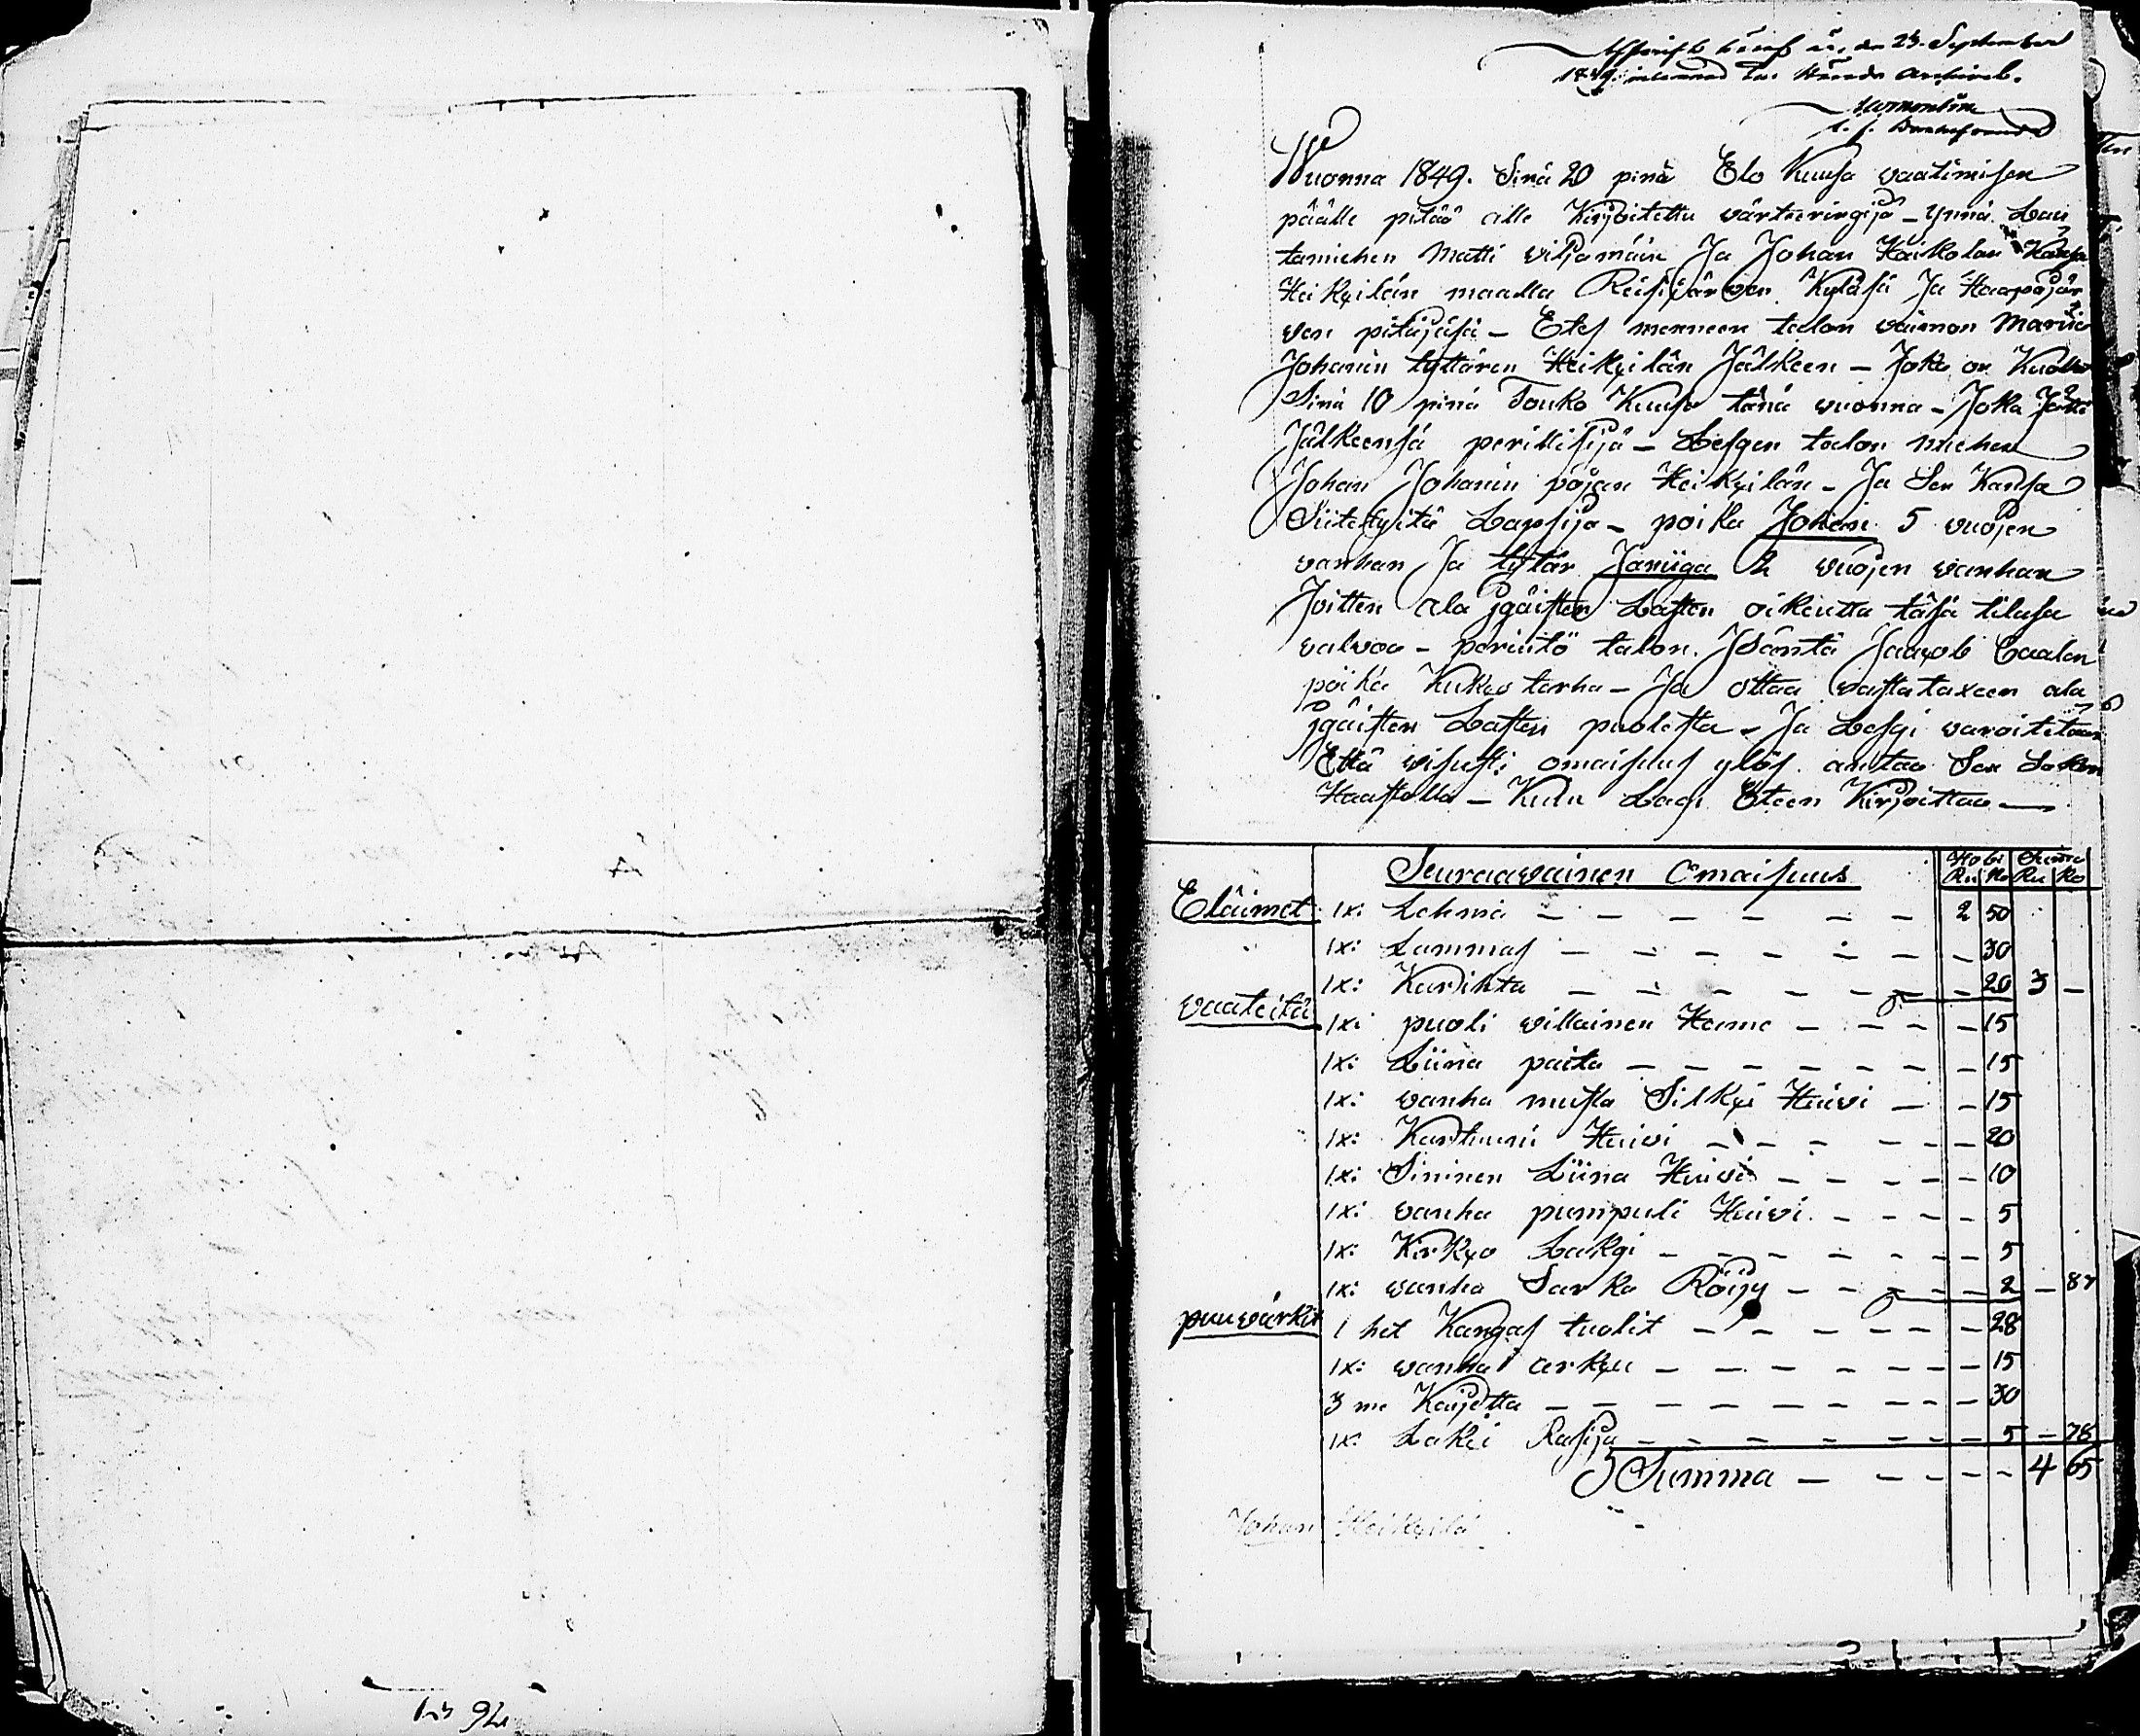 den 23. September
1849.
Wuonna 1849. Sinä 20 pinä Elo Kuusa vaatimisen
päälle pitää alle Kirjoitettu värteeringijä - ynnä Lau
tamiehen Matti viljamäin Ja Johan Kaikolan Kansa
Heikyilän maalla Reisijärven Kyläsä Ja Haapajär
ven pitäjäsä - Edes menneen talon vaimon Maria
Johanin tyttären Heikyilän Jälkeen - Joka on Kuollu
Sinä 10 pinä Touko Kuusa tänä vuonna - Joka Jätti
Jälkeensä perillisijä - Lesgen talon miehen
Johan Johanin pojan Heikyilän - Ja Sen Kansa
Siitettyitä Lapsija - poika Johan 5 vuojen
vanhan Ja tytär Janiiga 2 vuojen vanhan
Joitten ala jgäisten Lasten oikeutta täsä tilasa
valvoa - perintö talon Jsäntä Jaacob
poika Kukco tarha - Ja ottaa vastataxeen ala
jgäisten Lasten puolesta - Ja Lesgi varoitetaan
Että visusti omaisuus ylös antaa Sen
Haastolla - Kuin Laci Eteen Kirjoittaa —
Seuraavainen Omaisuus Ho bi Summa
Ru Ko Ru Ko
Eläimet 1x: Lehmä - - - - - - 2 50
1x: Lammas - - - - - - 30
1x: Karihta - - - - - - 20 3 -
vaateitä 1x: puoli villainen Hame - - - 15
1x: Liina paita - - - - - - 15
1x: vanha musta Silkyi Huivi - - 15
1x: Karttuuni Huivi - - - - - 20
1x: Sininen Liina Huivi - - - - 10
1x: vanha pumpuli Huivi - - - - 5
1x: Kirkyo Lakgi - - - - - - 5
1x: vanha Sarka Röijy - - - - 2 - 87
puuvärkit 1 het Kangas tuolit - - - - - 28
1x: vanha arkyu - - - - - - 15
3 me Kaijetta - - - - - - 30
1x: Lakei Rasija - - - - - - 5 - 78
Summa - - - - - 4 65
Johan Heikyilä